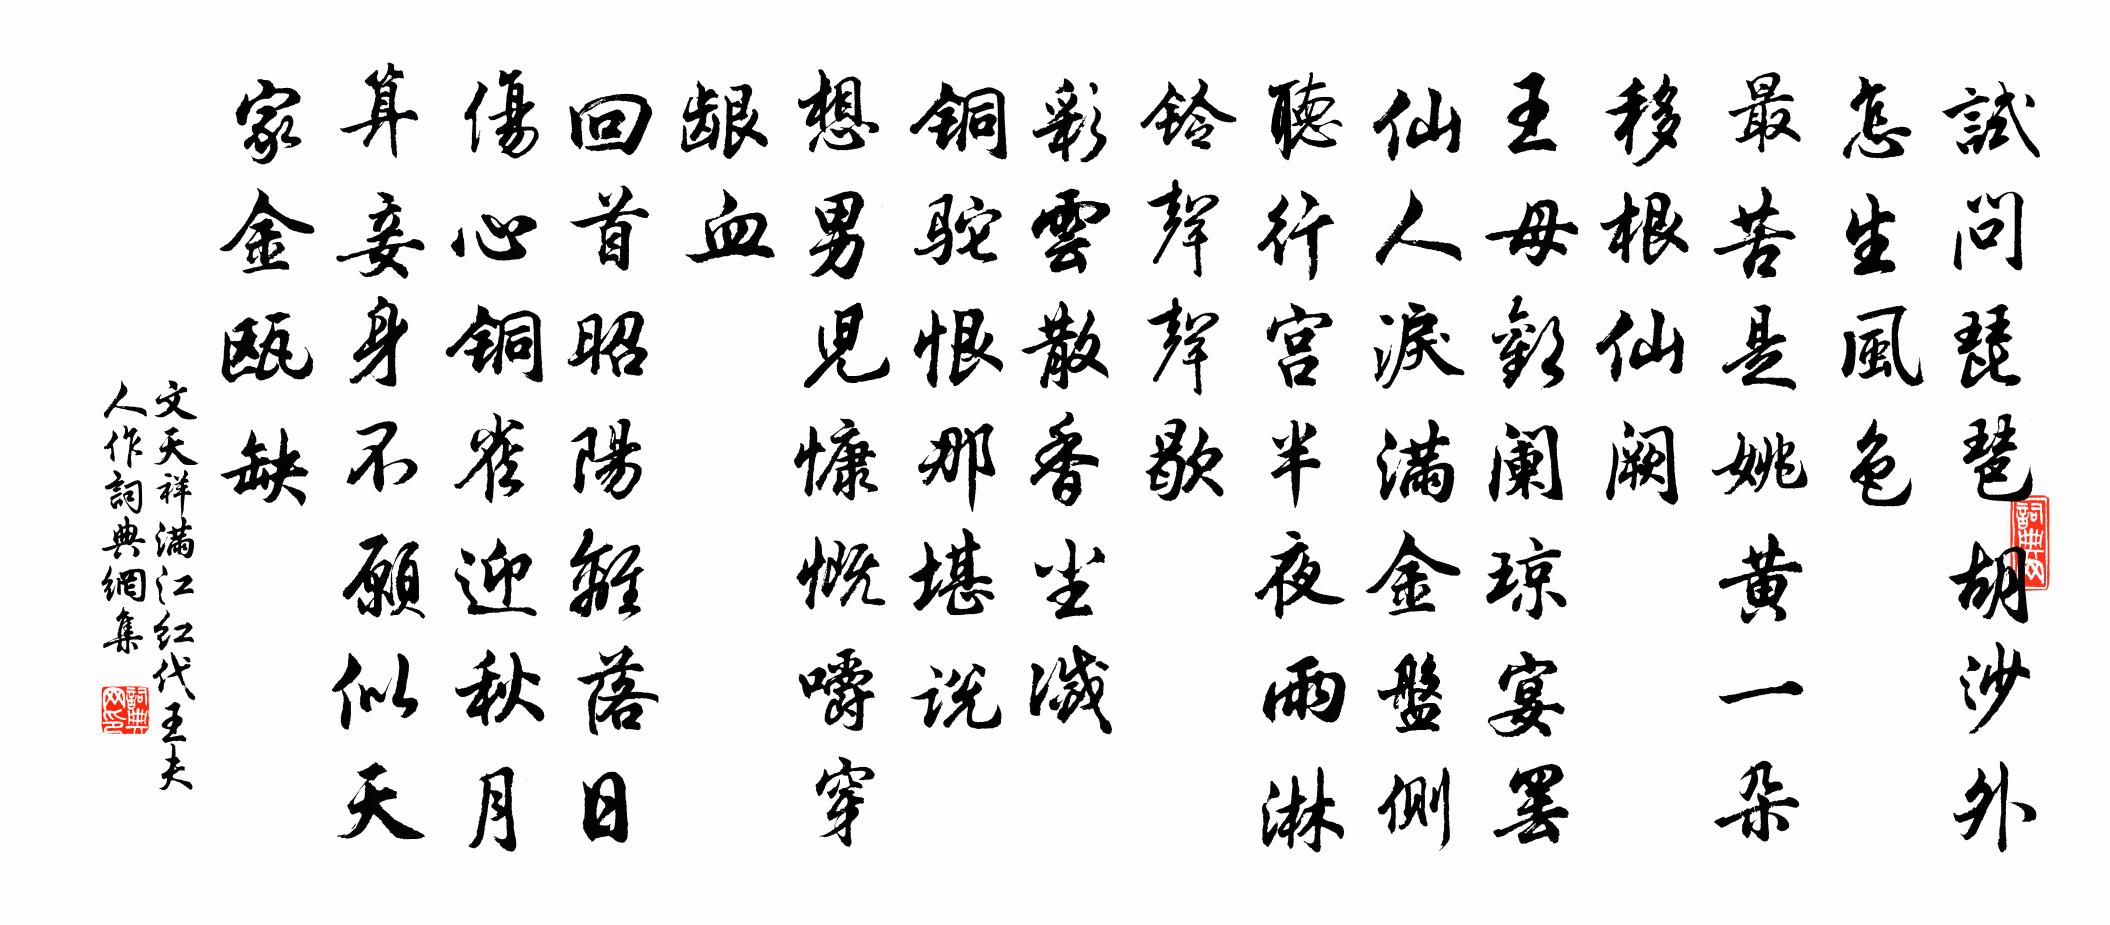 試問琵琶胡沙外
怎生風色
最苦是姚黃一朵
移根仙闕
王母歡闌琼宴罷
仙人淚滿金盤側
聽行宫半夜雨淋
鈴聲聲歇
彩雲散香尘滅
銅駝恨那堪说
想男兒慷慨嚼穿
龈血
回首昭陽離落日
傷心銅雀迎秋月
算妾身不願似天
家金瓯缺
文天祥滿江红代王夫
人作詞典網集
詞典网
詞典网印